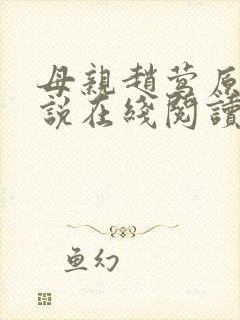 母親趙鶯原
說在綫閱讀
魚幻